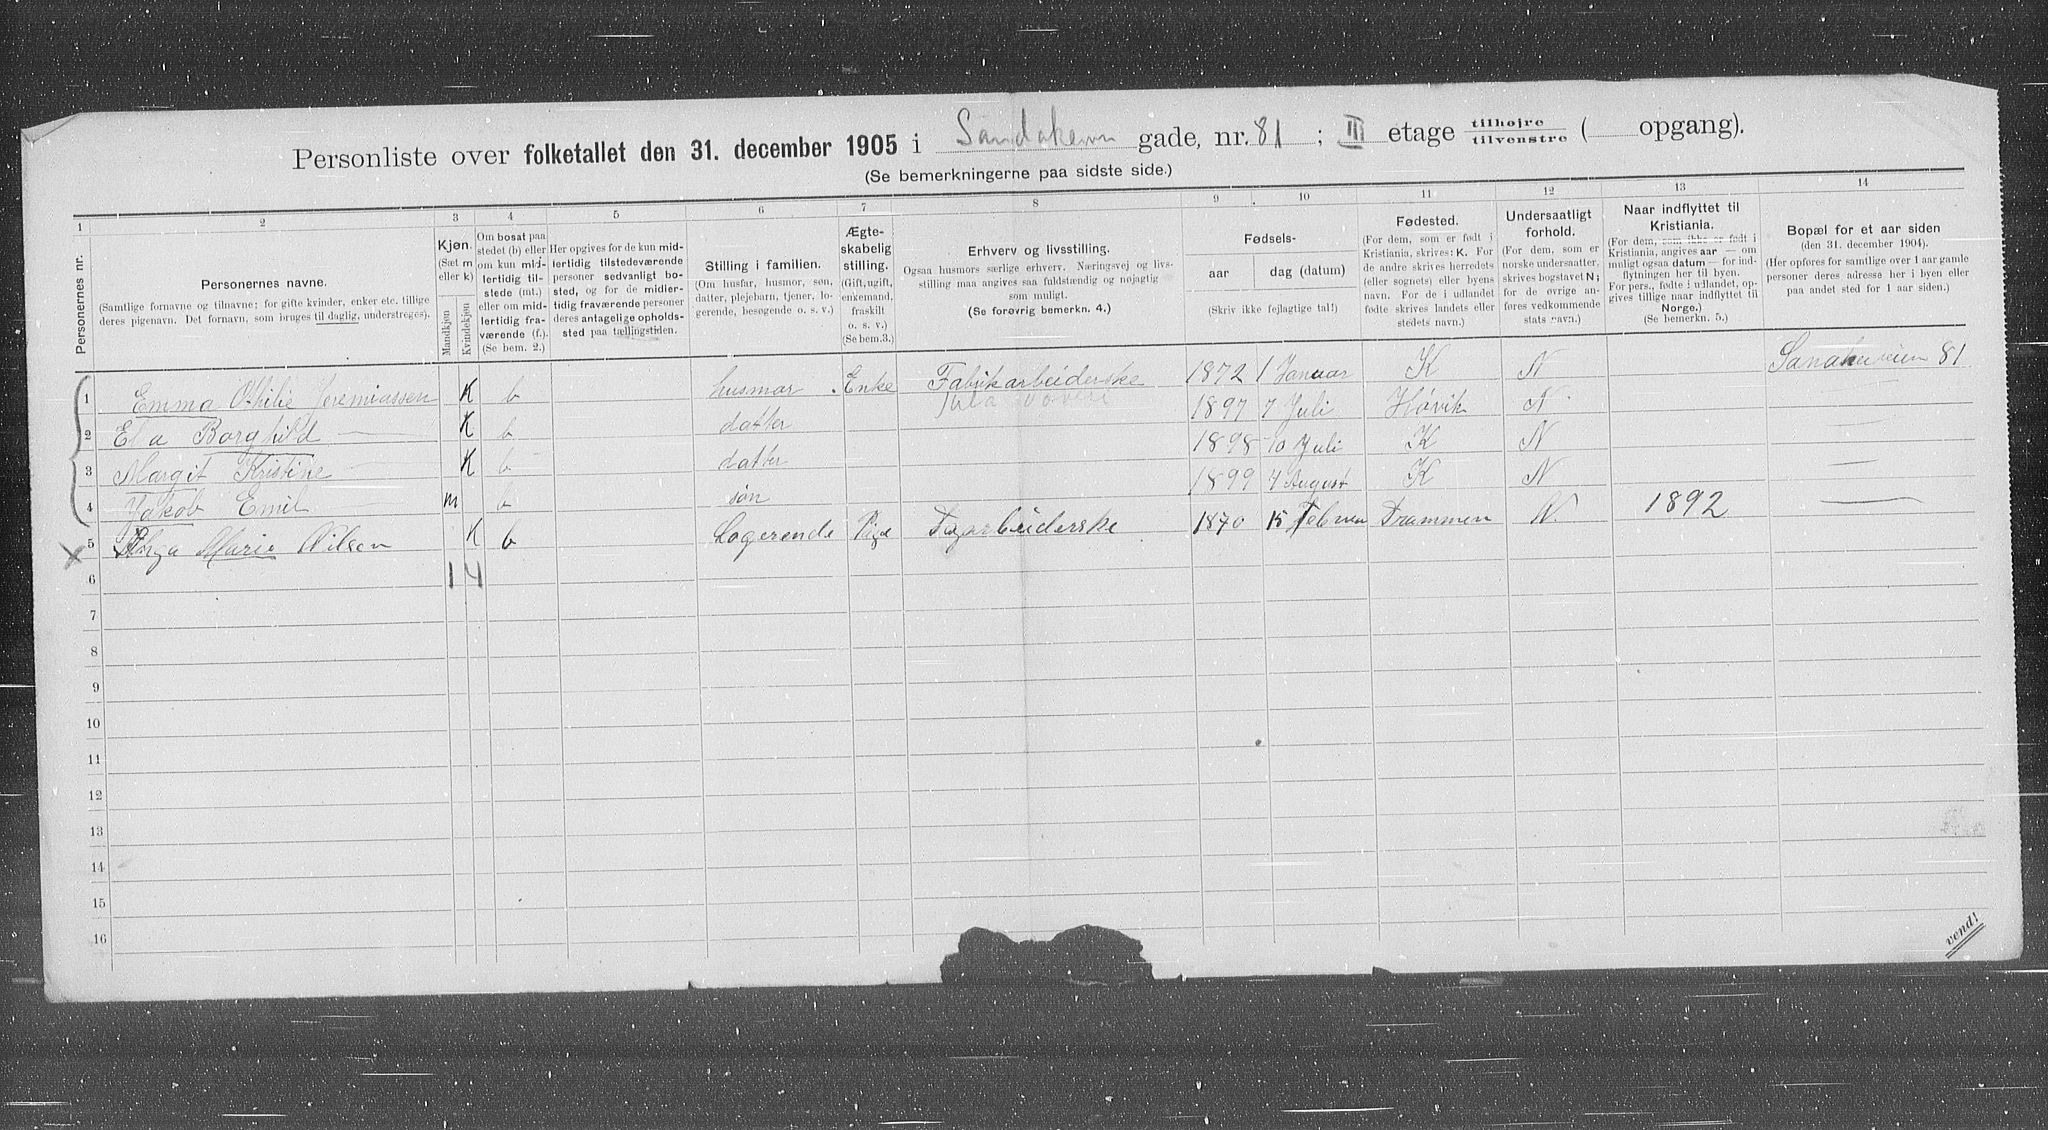 Personliste over folketallet den 31. december 1905 i Sandakervn gade, nr. 81 ; III etage tilhøjre / tilvenstre ( opgang).
(Se bemerkningerne paa sidste side.)
1 2 3 4 5 6 7 8 9 10 11 12 13 14
Personernes nr.
Personernes navne.
(Samtlige fornavne og tilnavne; for gifte kvinder, enker etc. tillige deres pigenavn. Det fornavn, som bruges til daglig, understreges).
Kjøn.
(Sæt m eller k)
Mandkjøn
Kvindekjøn
Om bosat paa stedet (b) eller om kun midlertidig tilstede (mt.) eller om midlertidig fraværende (f.).
(Se bem. 2.)
Her opgives for de kun midlertidig tilstedeværende personer sedvanligt bosted, og for de midlertidig fraværende personer deres antagelige opholdssted paa tællingstiden.
Stilling i familien.
(Om husfar, husmor, søn, datter, plejebarn, tjener, logerende, besøgende o. s. v.)
Ægteskabelig stilling.
(Gift, ugift, enkemand, fraskilt o. s. v.)
(Se bem.3.)
Erhverv og livsstilling.
Ogsaa husmors særlige erhverv. Næringsvej og livsstilling maa angives saa fuldstændig og nøjagtig som muligt.
(Se forøvrig bemerkn. 4.)
Fødsels-
aar
dag (datum)
(Skriv ikke fejlagtige tal!)
Fødested.
(For dem, som er født i Kristiania, skrives: K. For de andre skrives herredets (eller sognets) eller byens navn. For de i udlandet fødte skrives landets eller stedets navn.)
Undersaatligt forhold.
(For dem, som er norske undersaatter, skrives bogstavet N; for de øvrige anføres vedkommende stats navn.)
Naar indflyttet til Kristiania.
(For dem, som ikke er født i Kristiania, angives aar — om muligt ogsaa datum — for indflytningen her til byen. For pers., fødte i udlandet, opgives tillige naar indflyttet til Norge.)
(Se bemerkn. 5.)
Bopæl for et aar siden
(den 31. december 1904).
(Her opføres for samtlige over 1 aar gamle personer deres adresse her i byen eller paa andet sted for 1 aar siden.)
1 Emma Othilie Jeremiassen K b husmor Enke Fabrikarbeiderske 1872 1 Januar K N Sandakerveien 81
2 Borghild — K b datter 1897 7 Juli Høvik N —
3 Margit Kristine — K b datter 1898 10 Juli K N —
4 Jakob Emil m b søn 1899 7 August K N —
5 Marie Nilsen K b Logerende Pige 1870 15 Drammen N. 1892 —
6 1 4
7
8
9
10
11
12
13
14
15
16
vend!